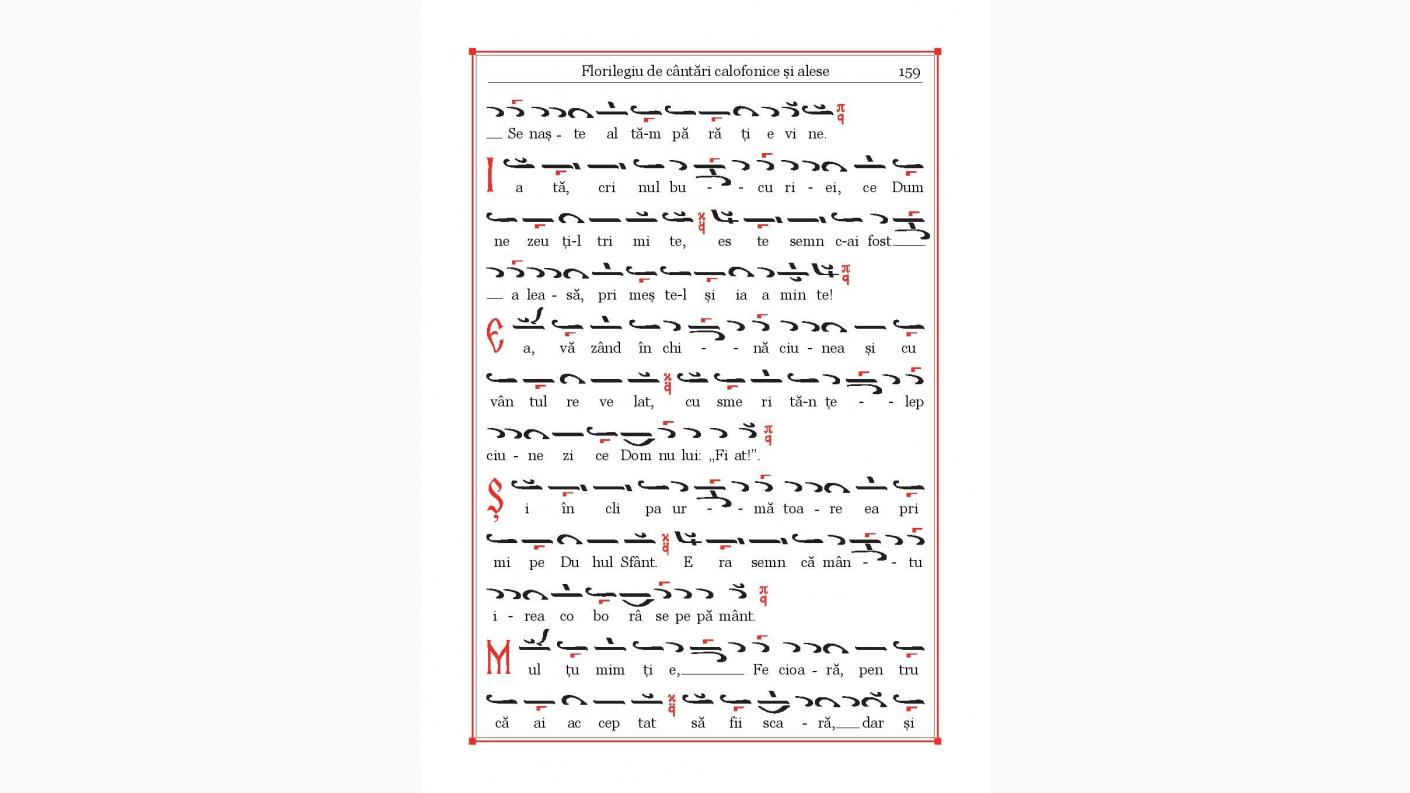 Florilegiu de cântări calofonice și alese 159
__ Se naș - te al tă-m pă ră ți e vi ne.
I a tă, cri nul bu - - cu ri - ei, ce Dum
ne zeu ți-l tri mi te, es te semn c-ai fost____
__ a lea - să, pri meș te-l și ia a min te!
E a, vă zând în chi - - nă ciu - nea și cu
vân tul re ve lat, cu sme ri tă-n țe - - lep
ciu - ne zi ce Dom nu lui: „Fi at!”.
Ș i în cli pa ur - - mă toa - re ea pri
mi pe Du hul Sfânt. E ra semn că mân - - tu
i - rea co bo râ se pe pă mânt.
M ul țu mim ți e,________ Fe cioa - ră, pen tru
că ai ac cep tat să fii sca - ră,___ dar și